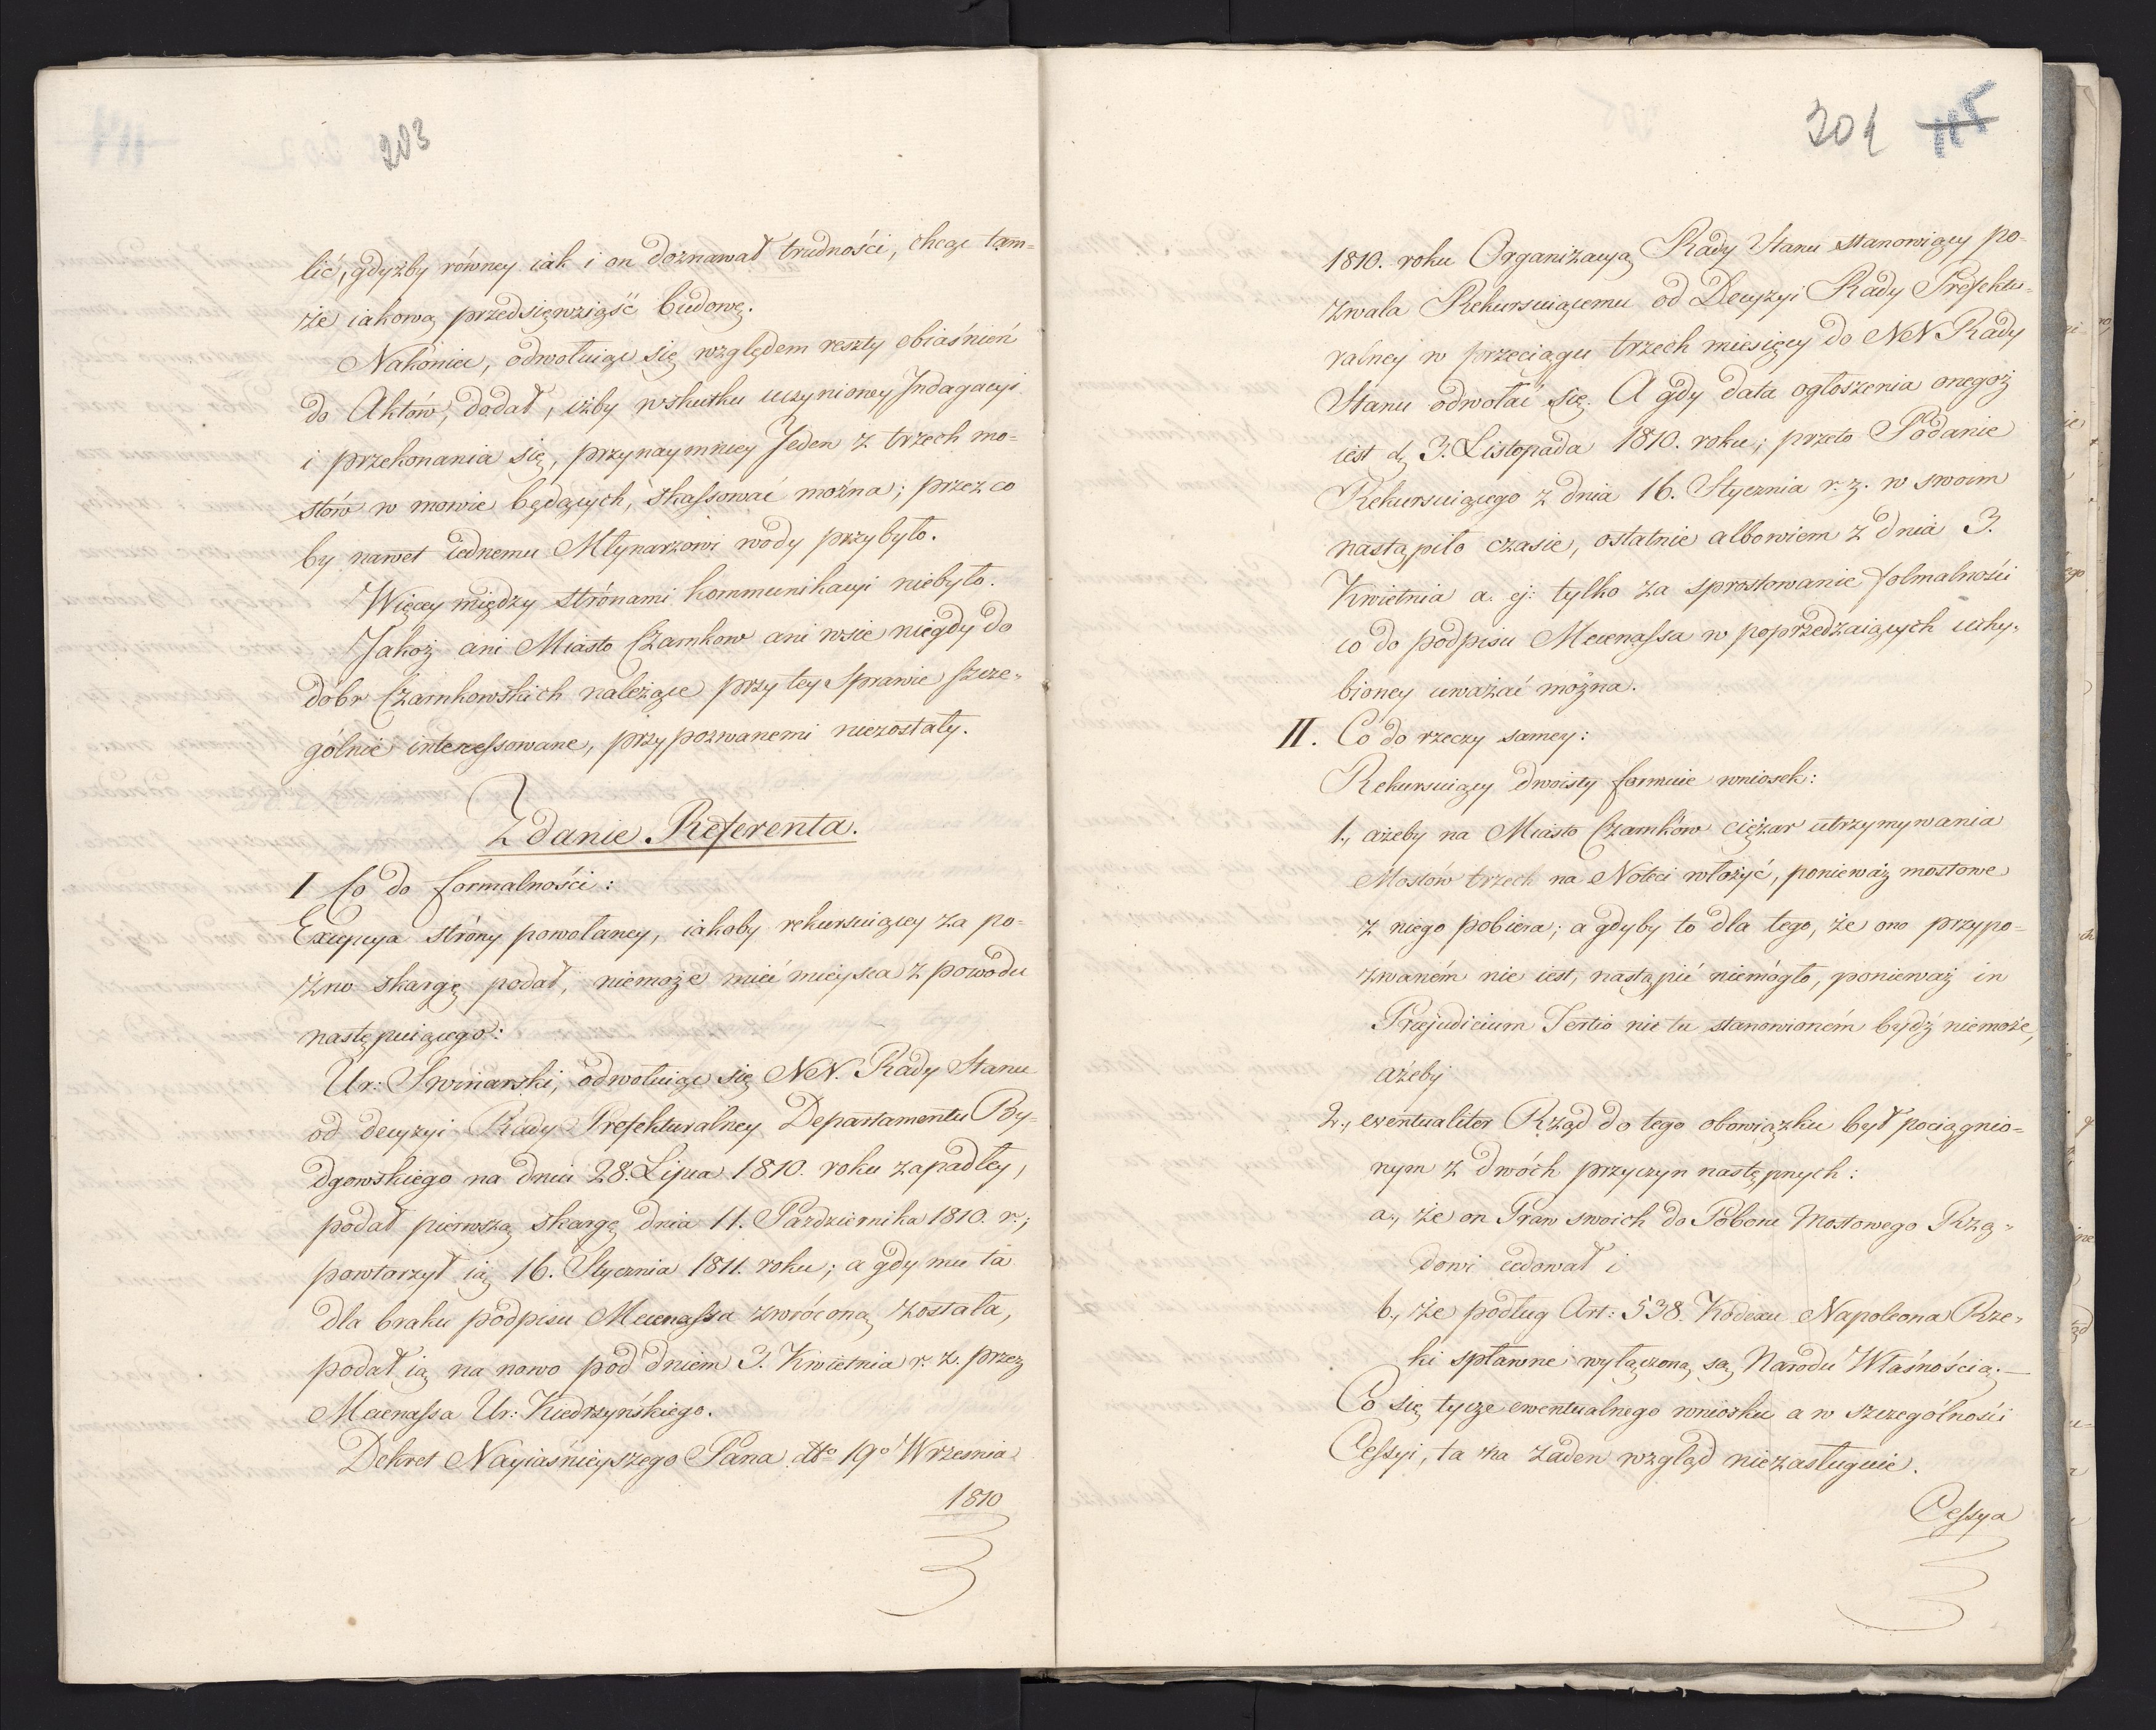 203
lić, gdyżby równey iak i on doznawał trudności, chcąc tam-
że iakową przedsięwziąść budowę.
Nakoniec, odwołuiąc się względem reszty obiaśnień
do Aktów, dodał, iżby wskutku uczynioney Indagacyi
i przekonania się, przynaymniey Jeden z trzech mo-
stów w mowie będących, skassować można; przez co
by nawet iednemu Młynarzowi wody przybyło.
Więcey między stronami kommunikacyi niebyło.
Jakoż ani Miasto Czarnkow ani wsie niegdy do
dóbr Czarnkowskich należące przy tey sprawie szcze-
gólnie interessowane, przypozwanemi niezostały.
Zdanie Referenta.
I Co do formalności:
Excepcya strony powołaney, iakoby rekursuiący za po-
źno skargę podał, niemoże mieć mieysca z powodu
następuiącego:
Ur: Swinarski, odwołuiąc się NeN. Rady Stanu
od decyzyi Rady Prefekturalney Departamentu By-
dgowskiego na dniu 28. Lipca 1810. roku zapadłey,
podał pierwszą skargę dnia 11. Pazdziernika 1810. r.;
powtorzył ią 16. Stycznia 1811. roku; a gdy mu ta
dla braku podpisu Mecenassa zwróconą została,
podał ią na nowo pod dniem 3. Kwietnia r. z. przez
Mecenassa Ur: Kiedrzyńskiego.
Dekret Nayiaśnieyszego Pana dtto 19o Wrzesnia
1810
204 115
1810. roku Organizacyą Rady Stanu stanowiący po-
zwala Rekursuiącemu od Decyzyi Rady Prefektu-
ralney w przeciągu trzech miesięcy do NeN. Rady
Stanu odwołać się. A gdy data ogłoszenia onegoż
iest d. 3. Listopada 1810. roku; przeto Podanie
Rekursuiącego z dnia 16. Stycznia r. z. w swoim
nastąpiło czasie, ostatnie albowiem z dnia 3.
Kwietnia a. ej: tylko za sprostowanie folmalności
co do podpisu Mecenassa w poprzedzaiących uchy-
bioney uważać można.
II. Co do rzeczy samey:
Rekursuiący dwoisty formuie wniosek:
1., ażeby na Miasto Czarnków ciężar utrzymywania
Mostów trzech na Noteci włożyć, ponieważ mostowe
z niego pobiera; a gdyby to dla tego, że ono przypo-
zwaném nie iest, nastąpić niemógło, ponieważ in
Praejudicium Tertio nic tu stanowioném bydź niemoże,
ażeby
2., ewentualiter Rząd do tego obowiązku był pociągnio-
nym z dwóch przyczyn następnych:
a., że on Praw swoich do Poboru Mostowego Rzą-
dowi cedował i
b., że podług Art: 538. Kodexu Napoleona Rze-
ki spławne wyłączoną są Narodu Własnością.—
Co się tycze ewentualnego wniosku a w szczególności
Cessyi, ta na żaden wzgląd niezasługuie.
Cessya